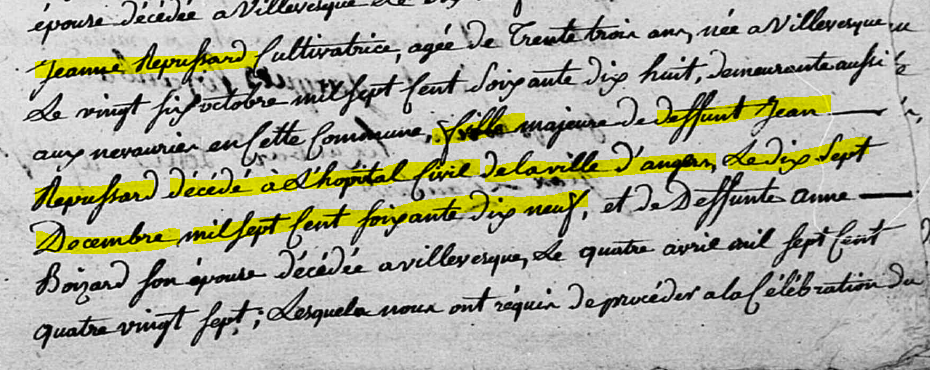 épouse décédée a Villevesque Le
Jeanne Repussard Cultivatrice, agée de Trente trois ans, née a Villevesque
Le vingt six octobre mil sept Cent Soixante dix huit, demeurante aussi
aux nevouries en Cette Commune, fille majeure de deffunt Jean —
Repussard décédé à L'hopital Civil de la ville d'angers, Le dix Sept
Decembre mil sept Cent soixante dix neuf, et de Deffunte anne —
Boizard son épouse décédée a villevesque, Le quatre avril mil sept Cent
quatre vingt sept; Lesquels nous ont réquis de procéder a la Célébration du